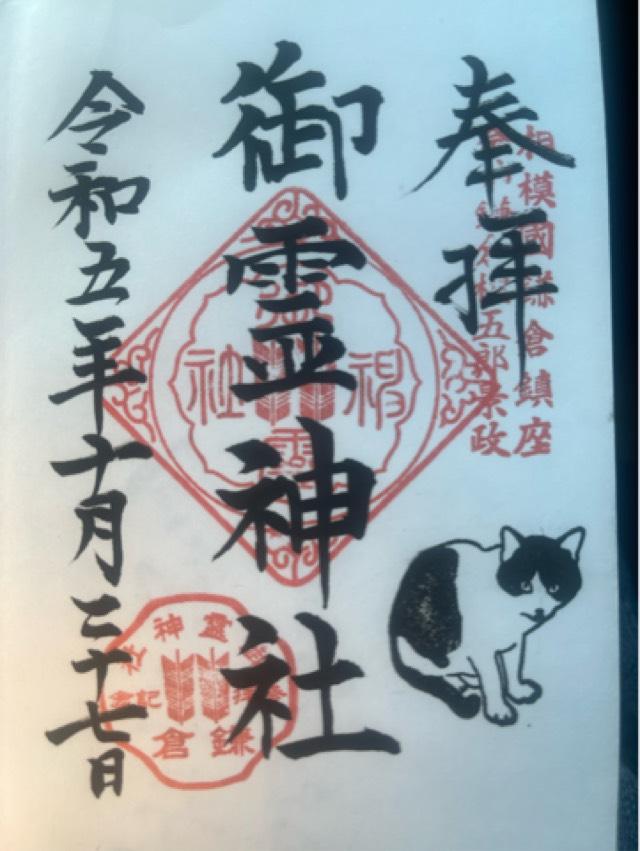 奉拝
相模國鎌倉鎮座
五郎景政
御霊神社
令和五年十月二十七日
神
社
霊
神
鎌
倉